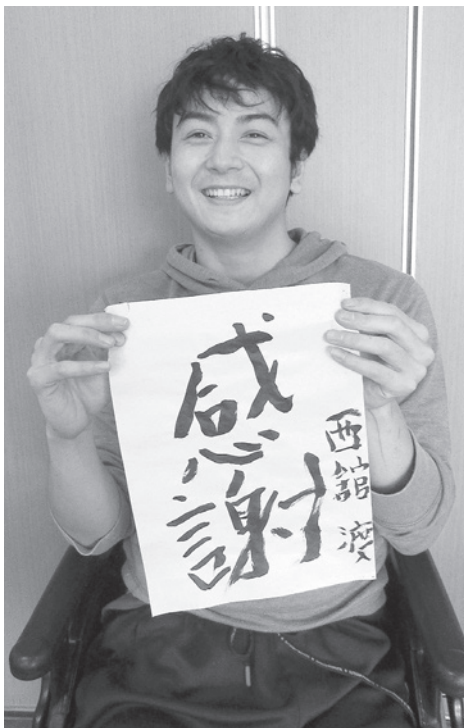 感謝
西舘渡